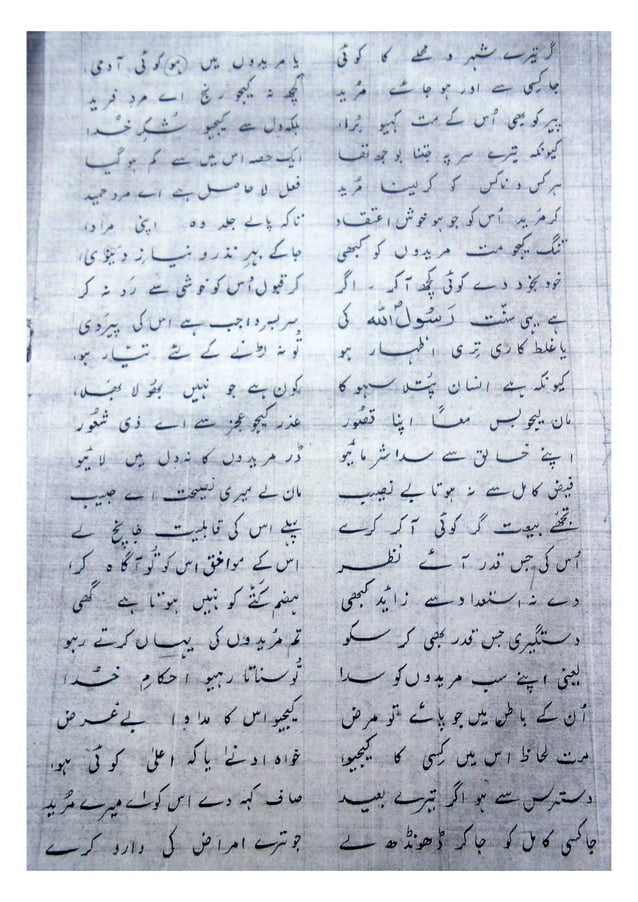 گر تیرے شہر و محلے کا کوئی یا مریدوں میں ہو کوئی آدمی
جا کسی سے اور ہو جائے مرید کچھ نہ کیجو رنج اے مرد فرید
پیر کو بھی اُس کے مت کہیو بُرا بلکہ دل سے کیجیو شکرِ خدا
کیونکہ تیرے سر پہ جتنا بوجھ تھا ایک حصہ اس میں سے کم ہو گیا
ہر کس و ناکس کو کر لینا مرید فعل لا حاصل ہے اے مرد حمید
کر مرید اُس کو جو ہو خوش اعتقاد تاکہ پالے جلد وہ اپنی مراد
تنگ کیجو مت مریدوں کو کبھی جا کے بہرِ نذر و نیاز دنیوی
خود بخود دے کوئی کچھ آ کر ۔ اگر کر قبول اُس کو خوشی سے رَد نہ کر
ہے یہی سنّت رَسُولُ اللہ کی سر بسر واجب ہے اس کی پیروی
یا غلط کاری تِری اظہار ہو تُو نہ لڑنے کے لئے تیّار ہو
کیونکہ ہے انسان پُتلا سہو کا کون ہے جو نہیں بھُولا بھلا
مان لیجو بس معاً اپنا قصُور عذر کیجو عجز سے اے ذی شعُور
اپنے خالق سے سدا شرمائیو ڈر مریدوں کا نہ دل میں لائیو
فیض کامل سے نہ ہو تا بے نصیب مان لے میری نصیحت اے حبیب
تجھ سے بیعت گر کوئی آ کر کرے پہلے اس کی قابلیت جانچ لے
اُس کی جس قدر آئے نظر اس کے موافق اس کو تُو آگاہ کر
دے نہ استعداد سے زائد کبھی ہضم کتّے کو نہیں ہوتا ہے گھی
دستگیری جس قدر بھی کر سکو تم مُریدوں کی یہاں کرتے رہو
یعنی اپنے سب مریدوں کو سدا تُو سناتا رہیو احکامِ خُدا
اُن کے باطن میں جو پائے تو مرض کیجیو اس کا مداوا بے غرض
مت لحاظ اس میں کِسی کا کیجیو خواہ ادنےٰ یا کہ اعلیٰ کوئی ہو
دسترس سے ہو اگر تیرے بعید صاف کہہ دے اس کو اے میرے مُرید
جا کسی کامل کو جا کر ڈھونڈھ لے جو ترے امراض کی دارو کرے